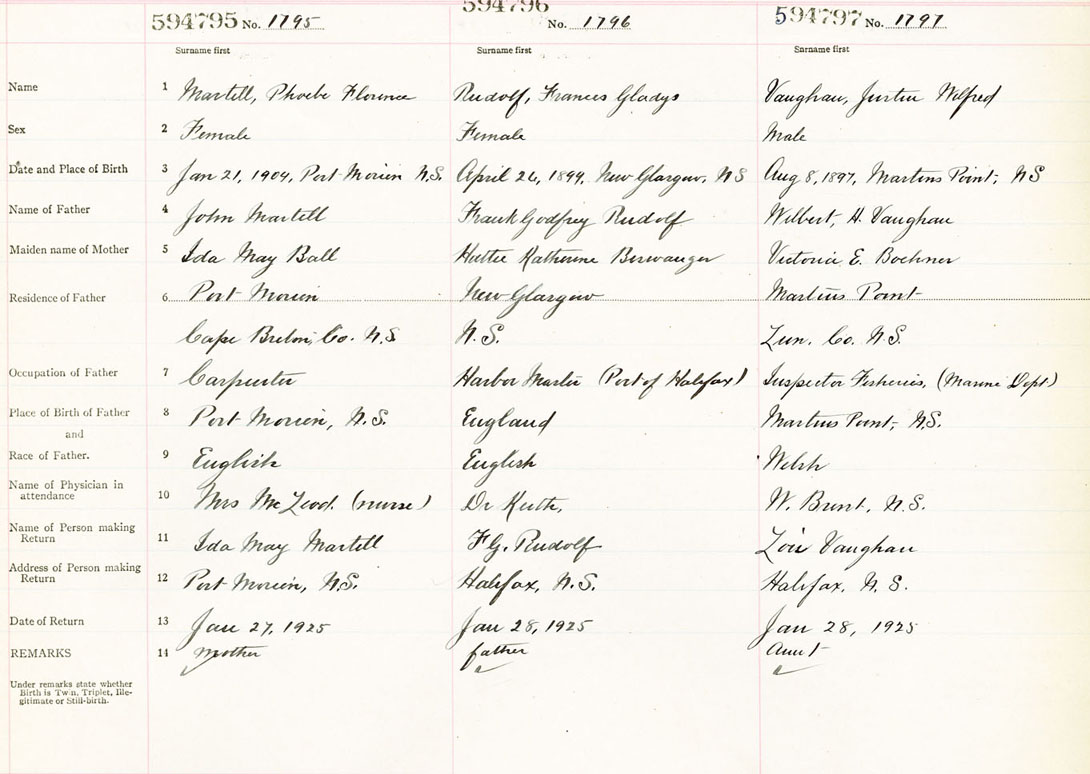 594795 No. 1795
594796 No. 1796
594797 No. 1797
Surname first Surname first Surname first
Name 1 Martell, Phoebe Florence Rudolf, Frances Gladys Vaughan, Justin Wilfred
Sex 2 Female Female Male
Date and Place of Birth 3 Jan 21, 1904, Port Morien N.S. April 26, 1899, New Glasgow, NS Aug 8, 1897, Martins Point, NS
Name of Father 4 John Martell Frank Godfrey Rudolf Wilbert, H. Vaughan
Maiden name of Mother 5 Ida May Ball Hattie Katherine Victoria E. Boehner
Residence of Father 6 Port Morien New Glasgow Martins Point
Cape Breton, Co. N.S N.S. Lun. Co. N.S.
Occupation of Father 7 Carpenter Harbor Master (Port of Halifax) Inspector Fisheries, (Marine Dept)
Place of Birth of Father 8 Port Morien, N.S. England Martins Point, N.S.
and
Race of Father. 9 English English Welsh
Name of Physician in
attendance 10 Mrs McLeod. (nurse) Dr Keith, W. N.S.
Name of Person making
Return 11 Ida May Martell F.G. Rudolf Vaughan
Address of Person making
Return 12 Port Morien, N.S. Halifax, N.S. Halifax, N.S.
Date of Return 13 Jan 27, 1925 Jan 28, 1925 Jan 28, 1925
REMARKS 14 mother father Aunt
Under remarks state whether
Birth is Twin, Triplet, Ille-
gitimate or Still-birth.